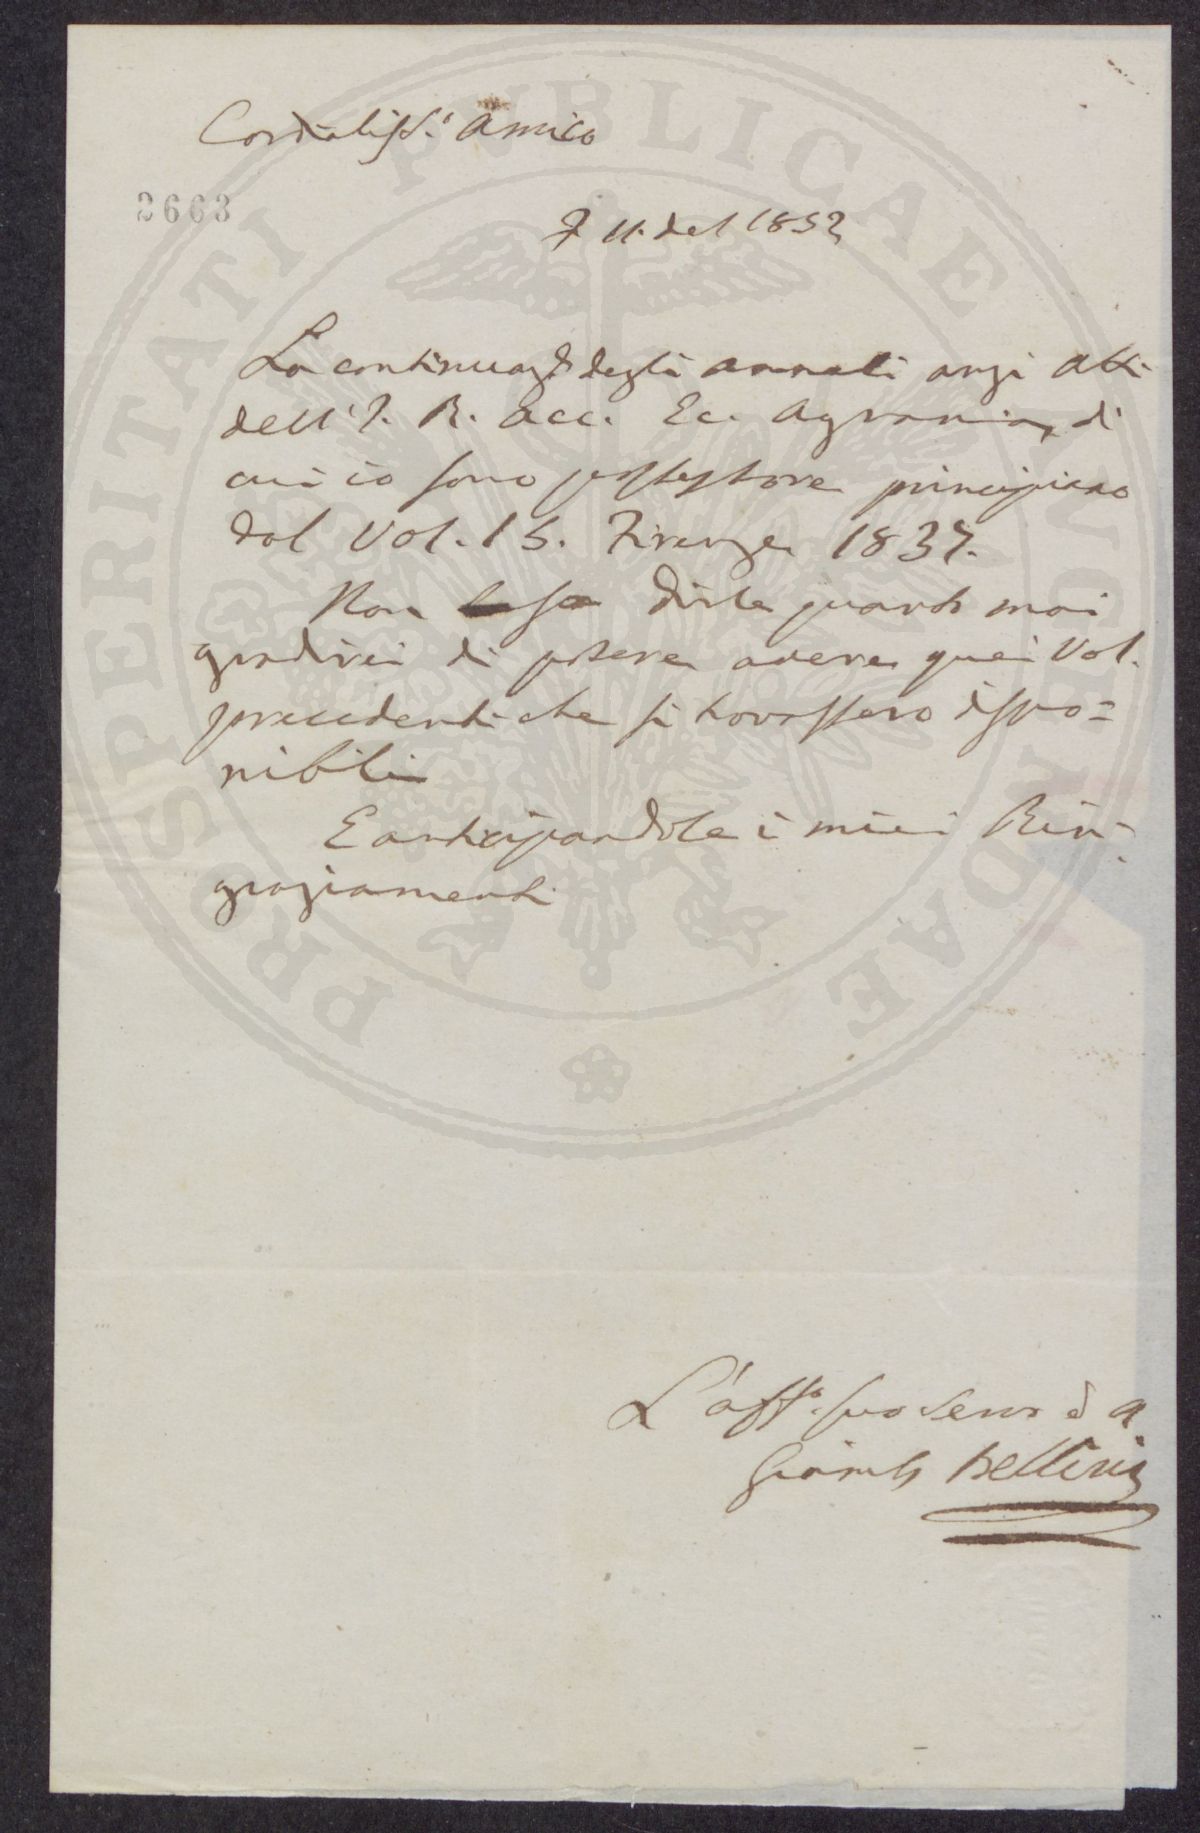 Cordialiss.º Amico
2663
7 11. del 1852
La continuaz.e degli annali anzi Atti
dell' I. R. Acc. Ec. Agraria, di
cui io sono possessore principiano
dal Vol. 15. Firenze 1837.
Non so dirle quanto mai
gradirei di potere avere quei Vol.
precedenti che si trovassero dispo=
nibili
E anticipandole i miei Rin-
graziamenti
L'aff.º suo serv e a
Giamb Bellini
PROSPERITATI PUBLICAE AUGENDAE